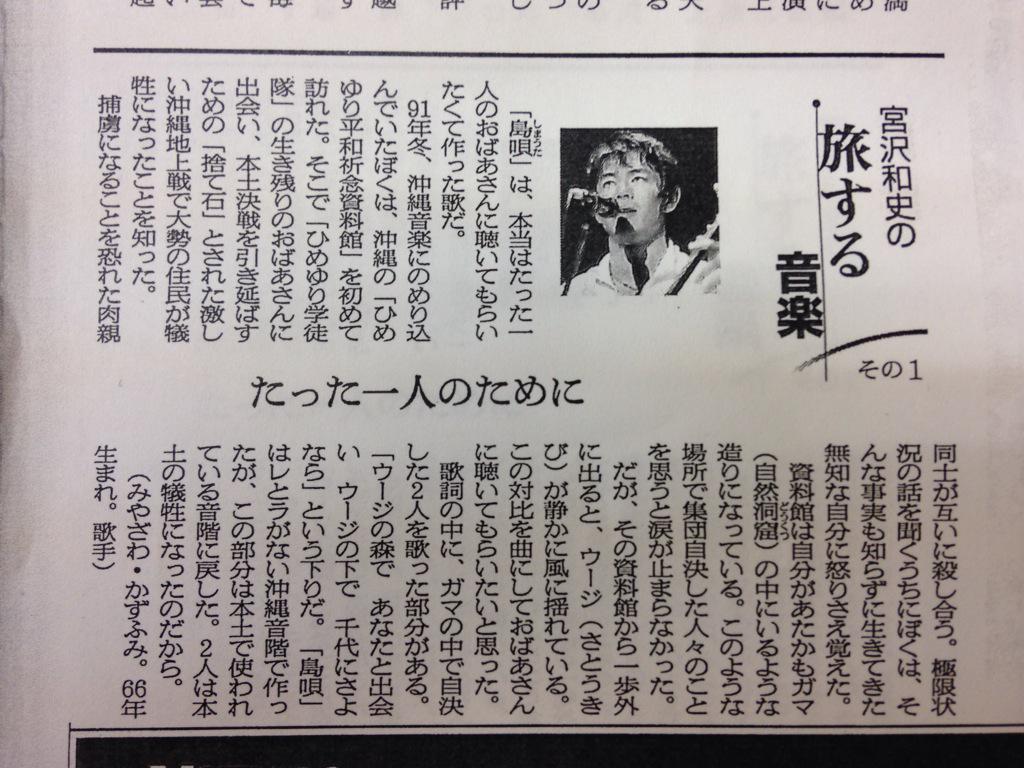 宮沢和史の
旅する
音楽
その1
「島唄」は、本当はたった一
しまうた
人のおばあさんに聴いてもらい
たくて作った歌だ。
91年冬、沖縄音楽にのめり込
んでいたぼくは、沖縄の「ひめ
ゆり平和祈念資料館」を初めて
訪れた。そこで「ひめゆり学徒
隊」の生き残りのおばあさんに
出会い、本土決戦を引き延ばす
ための「捨て石」とされた激し
い沖縄地上戦で大勢の住民が犠
牲になったことを知った。
捕虜になることを恐れた肉親
たった一人のために
同士が互いに殺し合う。極限状
況の話を聞くうちにぼくは、そ
んな事実も知らずに生きてきた
無知な自分に怒りさえ覚えた。
資料館は自分があたかもガマ
(自然洞窟)の中にいるような
どうくつ
造りになっている。このような
場所で集団自決した人々のこと
を思うと涙が止まらなかった。
だが、その資料館から一歩外
に出ると、ウージ(さとうき
び)が静かに風に揺れている。
この対比を曲にしておばあさん
に聴いてもらいたいと思った。
歌詞の中に、ガマの中で自決
した2人を歌った部分がある。
「ウージの森で あなたと出会
い ウージの下で 千代にさよ
なら」という下りだ。「島唄」
はレとラがない沖縄音階で作っ
たが、この部分は本土で使われ
ている音階に戻した。2人は本
土の犠牲になったのだから。
(みやざわ・かずふみ。66年
生まれ。歌手)